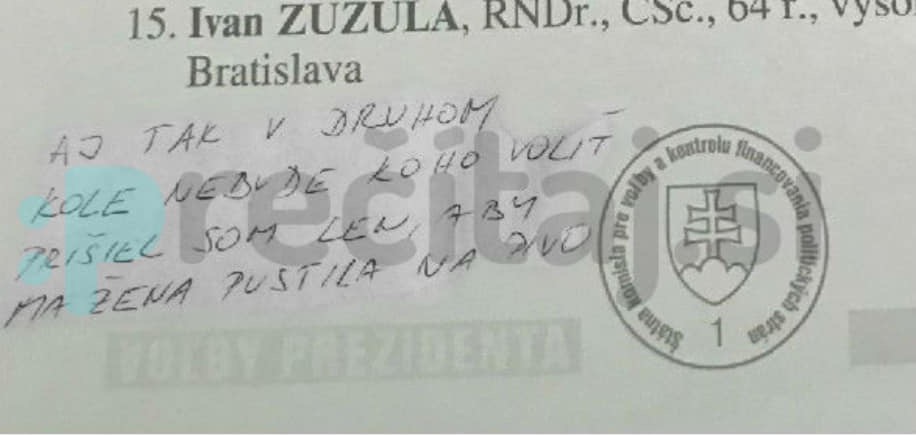 15. Ivan ZUZULA, RNDr., CSc., 64 r.,
Bratislava
AJ TAK V DRUHOM
KOLE NEBUDE KOHO VOLIŤ
PRIŠIEL SOM LEN, ABY
MA ŽENA PUSTILA NA PIVO
Prečítaj.si
Štátna komisia pre voľby a kontrolu financovania politických strán
1
VOĽBY PREZIDENTA